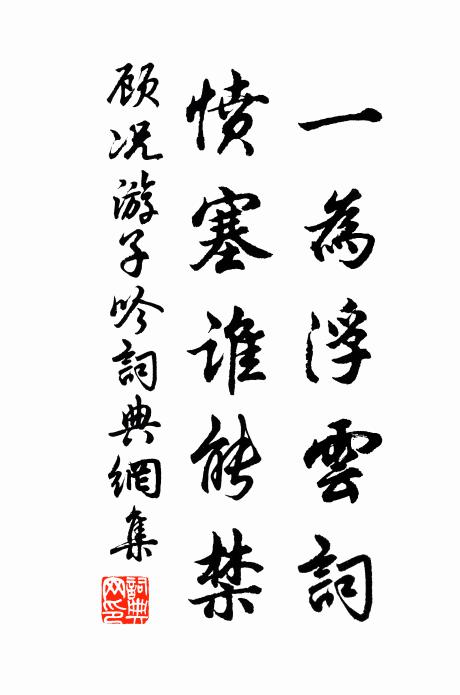 一為浮雲詞
憤塞誰能禁
顾况游子吟詞典網集
詞典
网印